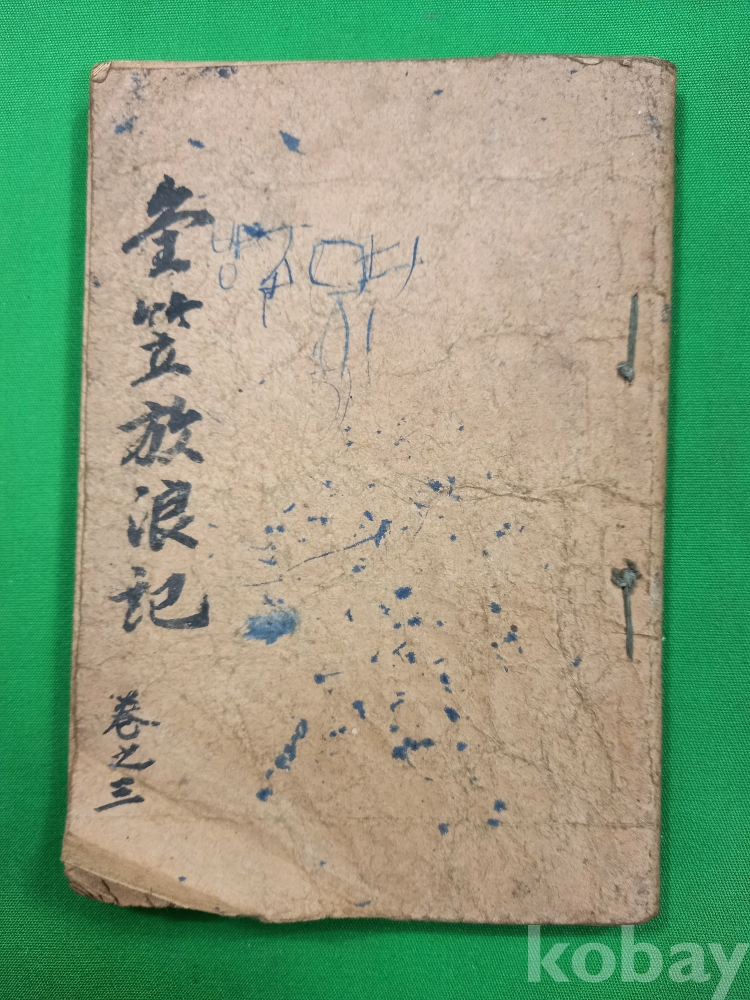 金笠放浪記
卷之三
kobay